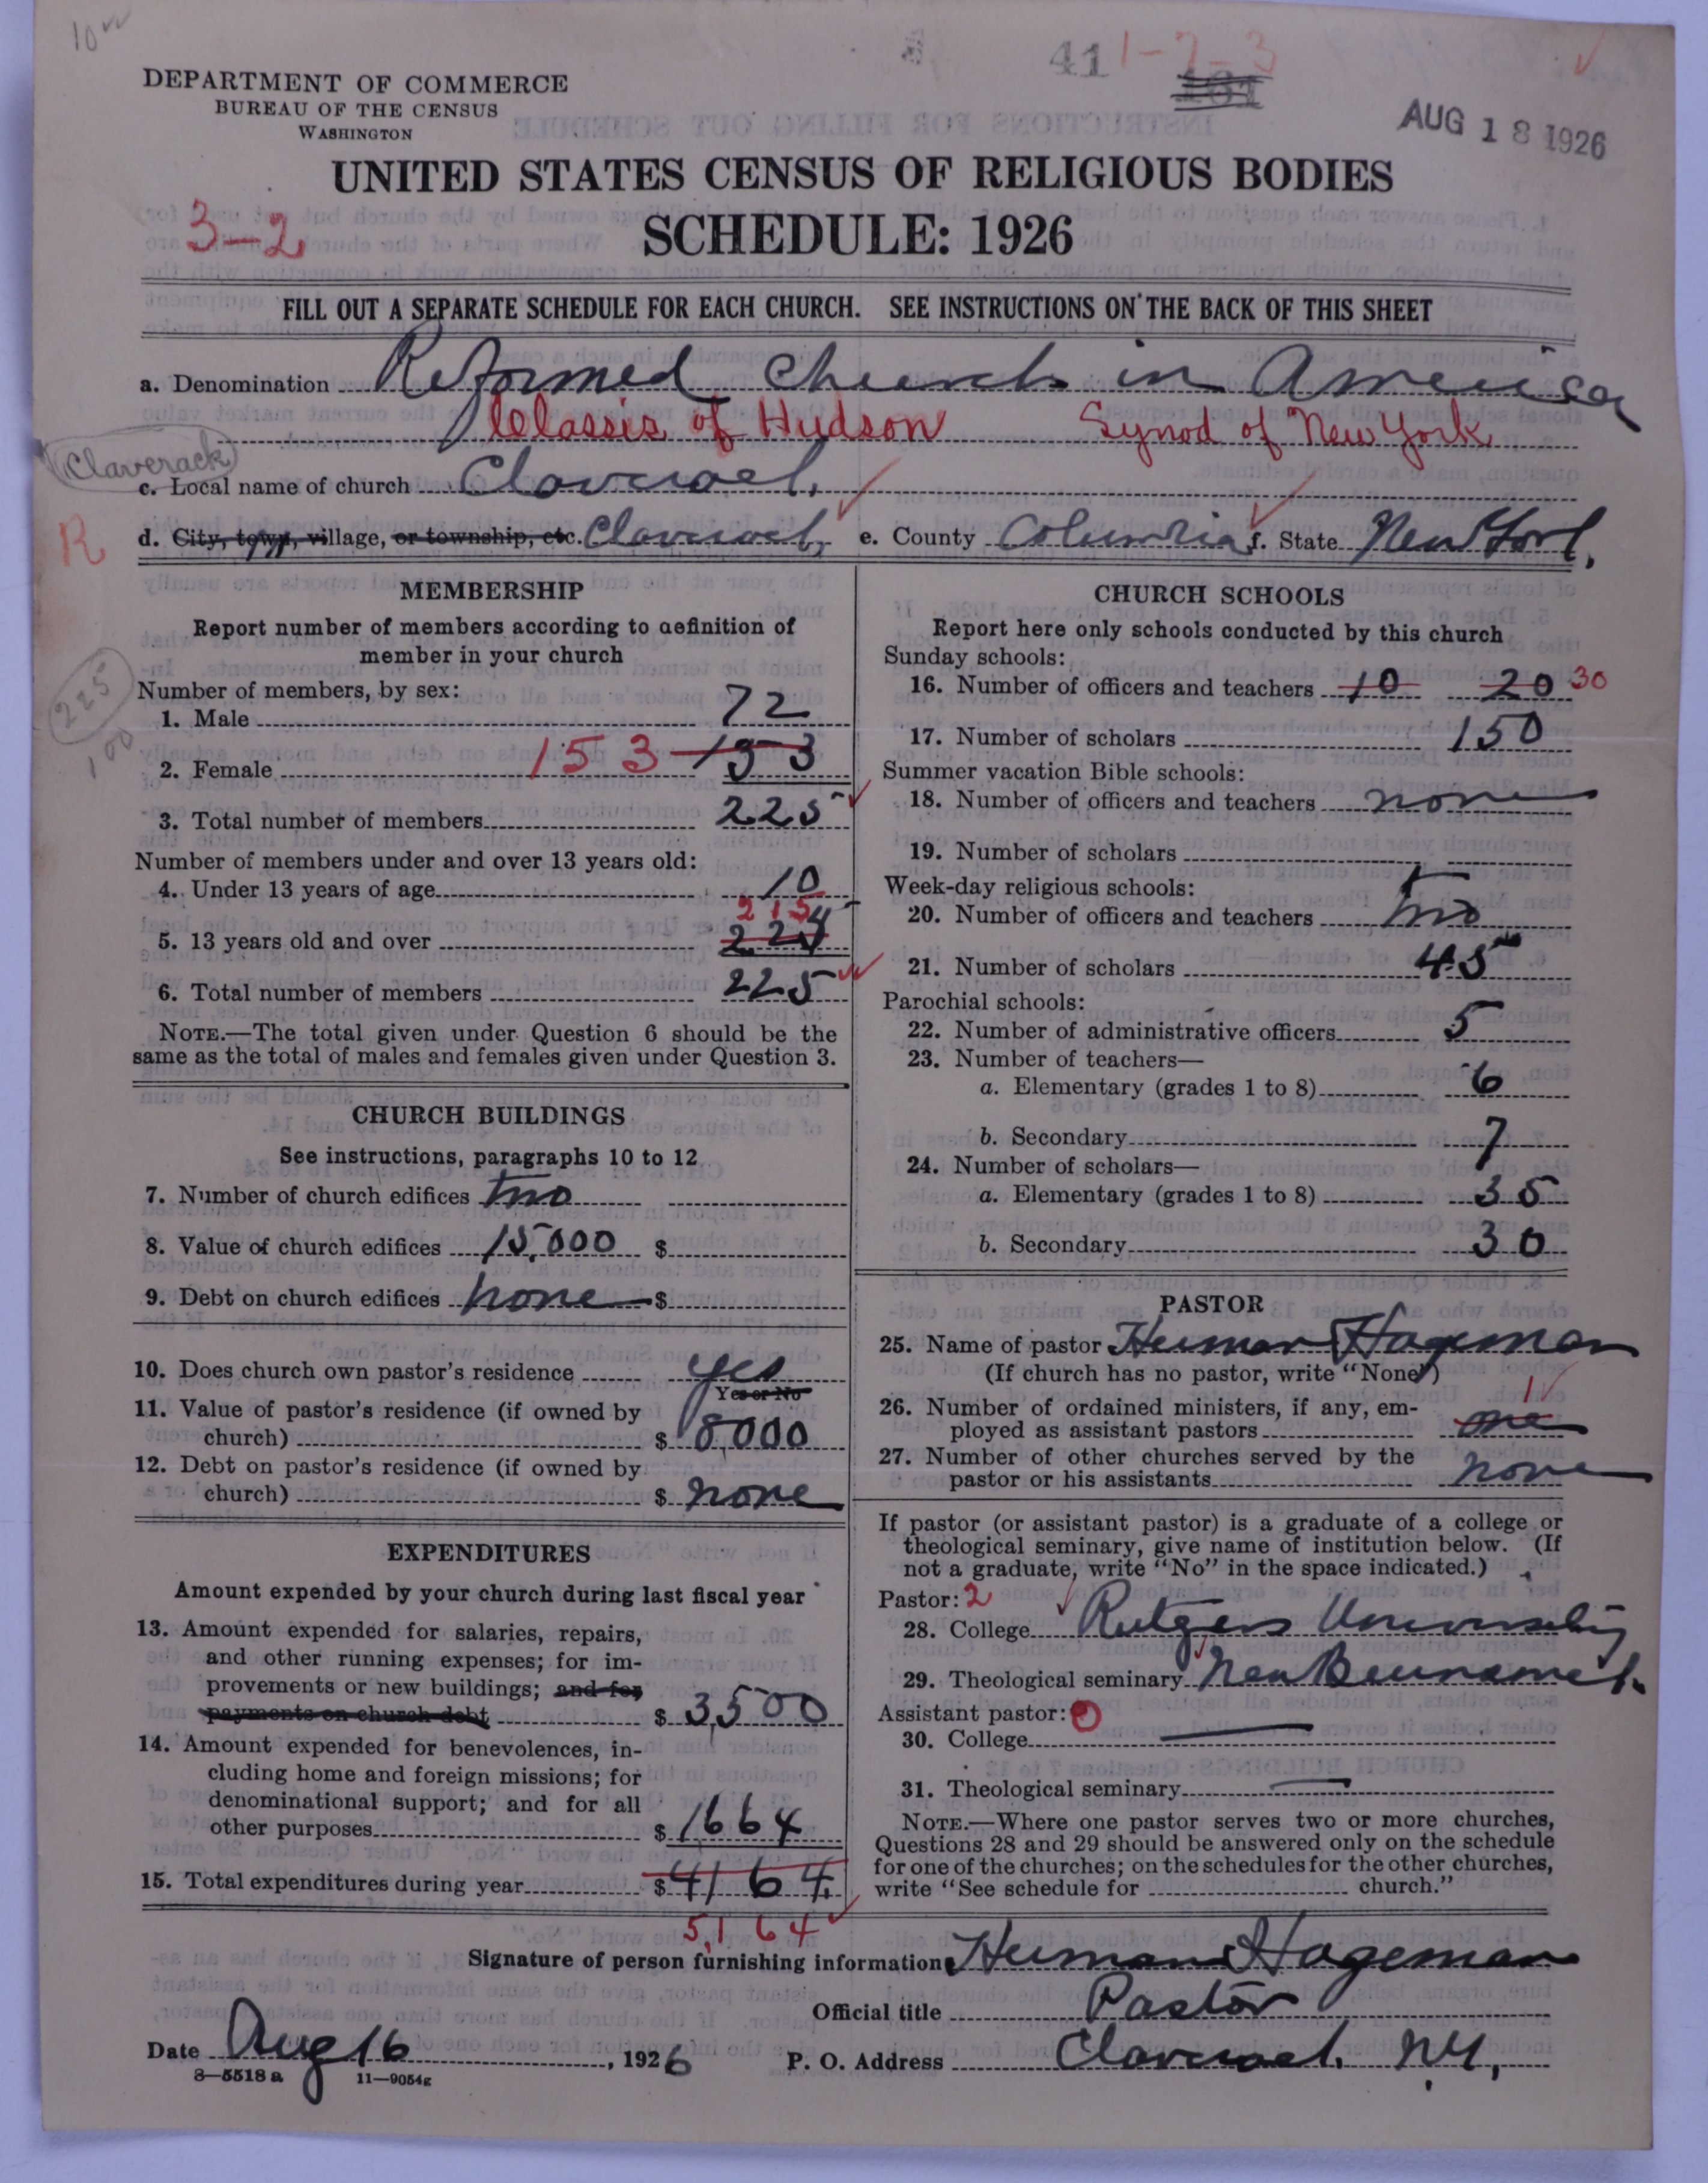 10
41 1-2-3
161
AUG 18 1926
DEPARTMENT OF COMMERCE
BUREAU OF THE CENSUS
WASHINGTON
UNITED STATES CENSUS OF RELIGIOUS BODIES
3-2
SCHEDULE: 1926
FILL OUT A SEPARATE SCHEDULE FOR EACH CHURCH. SEE INSTRUCTIONS ON THE BACK OF THIS SHEET
a. Denomination Reformed Church in America
Classis of Hudson Synod of New York
Claverack
c. Local name of church Claverack
R
d. City, town, village, or township, etc. Claverack, e. County Columbia f. State New York.
MEMBERSHIP
Report number of members according to definition of
member in your church
Number of members, by sex:
1. Male 72
225
100
2. Female 153 153
3. Total number of members 225
Number of members under and over 13 years old:
4. Under 13 years of age 10
215
5. 13 years old and over 224
6. Total number of members 225
NOTE.—The total given under Question 6 should be the
same as the total of males and females given under Question 3.
CHURCH BUILDINGS
See instructions, paragraphs 10 to 12
7. Number of church edifices two
8. Value of church edifices 15,000 $
9. Debt on church edifices none $
10. Does church own pastor's residence yes
Yes or No
11. Value of pastor's residence (if owned by
church) $ 8,000
12. Debt on pastor's residence (if owned by
church) $ none
EXPENDITURES
Amount expended by your church during last fiscal year
13. Amount expended for salaries, repairs,
and other running expenses; for im-
provements or new buildings; and for
payments on church debt $ 3,500
14. Amount expended for benevolences, in-
cluding home and foreign missions; for
denominational support; and for all
other purposes $ 1664
15. Total expenditures during year $ 4164
5,164
CHURCH SCHOOLS
Report here only schools conducted by this church
Sunday schools:
16. Number of officers and teachers 10 20 30
17. Number of scholars 150
Summer vacation Bible schools:
18. Number of officers and teachers none
19. Number of scholars
Week-day religious schools:
20. Number of officers and teachers two
21. Number of scholars 45
Parochial schools:
22. Number of administrative officers 5
23. Number of teachers—
a. Elementary (grades 1 to 8) 6
b. Secondary 7
24. Number of scholars—
a. Elementary (grades 1 to 8) 35
b. Secondary 30
PASTOR
25. Name of pastor Herman Hageman
(If church has no pastor, write "None")
26. Number of ordained ministers, if any, em-
ployed as assistant pastors one 1
27. Number of other churches served by the
pastor or his assistants none
If pastor (or assistant pastor) is a graduate of a college or
theological seminary, give name of institution below. (If
not a graduate, write "No" in the space indicated.)
Pastor: 2
28. College Rutgers University
29. Theological seminary New Brunswick
Assistant pastor: 0
30. College
31. Theological seminary
NOTE.—Where one pastor serves two or more churches,
Questions 28 and 29 should be answered only on the schedule
for one of the churches; on the schedules for the other churches,
write "See schedule for church."
Signature of person furnishing information Herman Hageman
Official title Pastor
Date Aug 16, 1926 P. O. Address Claverack N.Y.
8—5518a 11—9054g